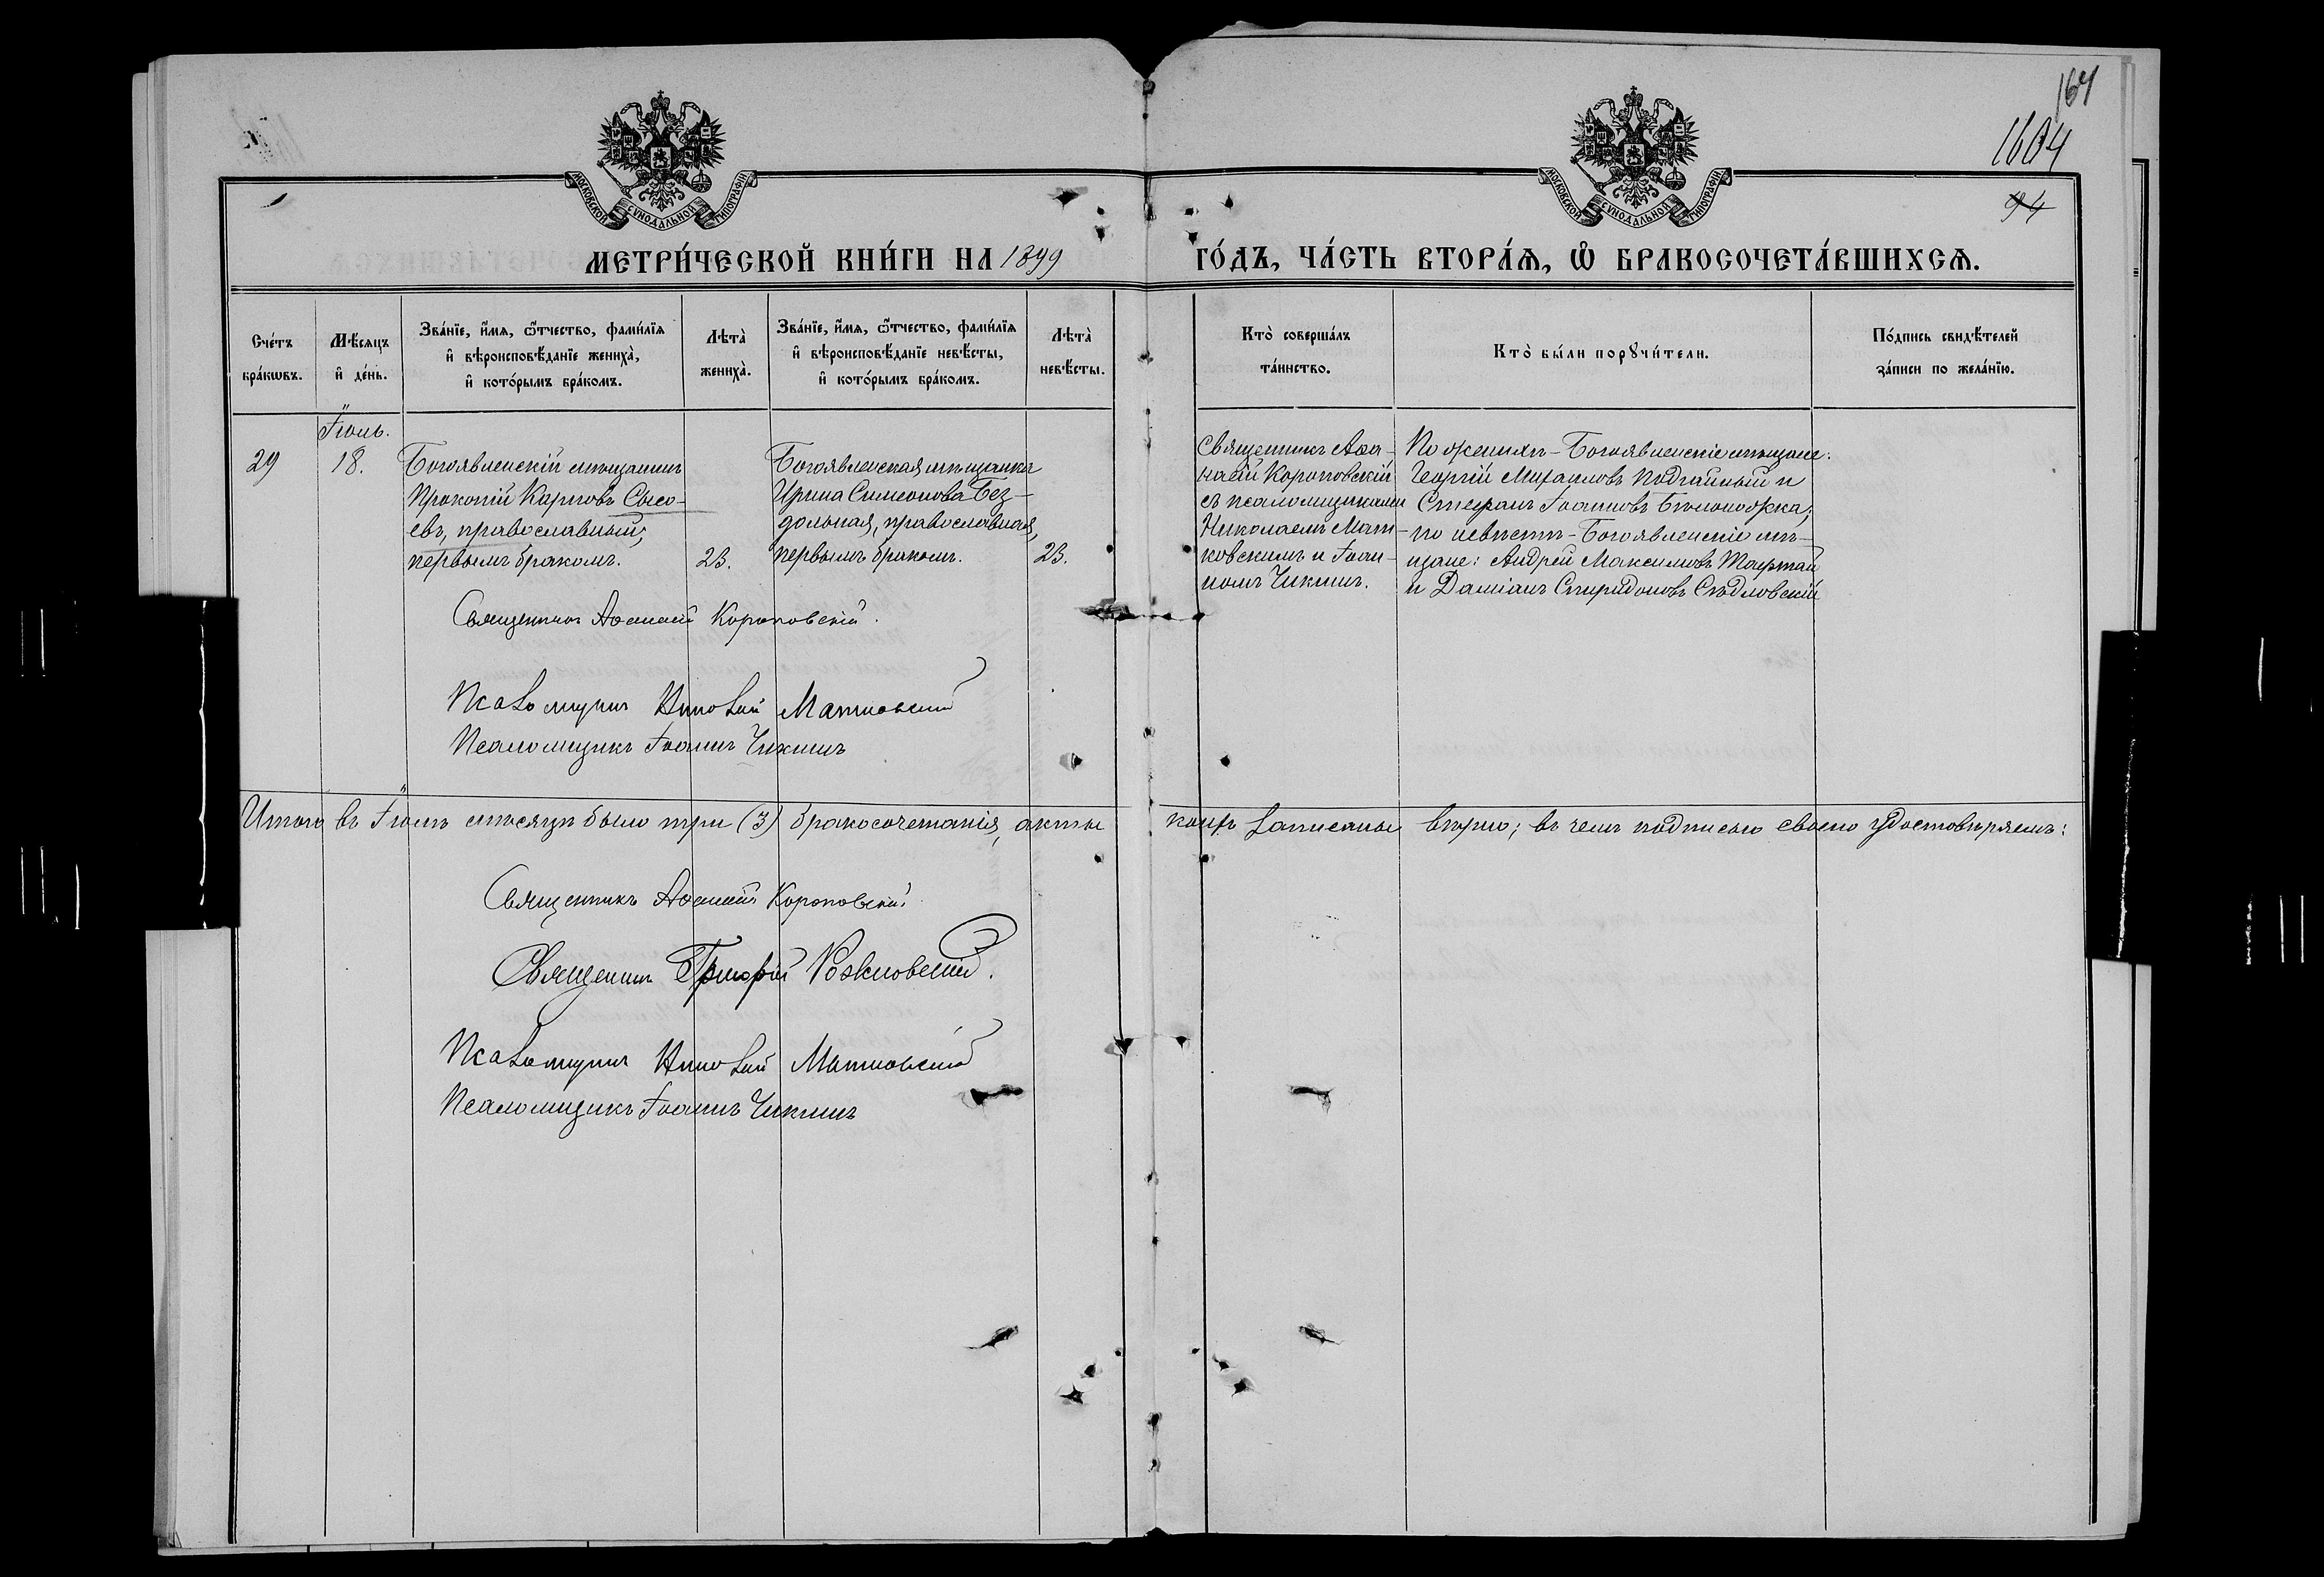 164
1604
94
МОСКОВСКОЙ СУНОДАЛЬНОЙ ТИПОГРАФІИ
МОСКОВСКОЙ СУНОДАЛЬНОЙ ТИПОГРАФІИ
МЕТРИ́ЧЕСКОЙ КНИ́ГИ НА 1899
ГО́ДЪ, ЧА́СТЬ ВТОРА́Ѧ, Ѡ҆ БРАКОСОЧЕТА́ВШИХСѦ.
Сче́тъ
бра́кѡвъ.
Мѣ́сяцъ
и҆ де́нь.
Зва́нїе, и҆́мѧ, ѻ҆́тчество, фами́лїѧ
и҆ вѣроисповѣ́данїе жениха̀,
и҆ кото́рымъ бра́комъ.
Лѣта̀
жениха̀.
Зва́нїе, и҆́мѧ, ѻ҆́тчество, фами́лїѧ
и҆ вѣроисповѣ́данїе невѣ́сты,
и҆ кото́рымъ бра́комъ.
Лѣта̀
невѣ́сты.
Кто̀ соверша́лъ
та́инство.
Кто̀ бы́ли порꙋчи́тели.
По́дпись свидѣ́телей
за́писи по жела́нїю.
29
Іюль.
18.
Богоявленскій мѣщанинъ
Прокопій Карповъ Сысо-
евъ, православный,
первымъ бракомъ.
23.
Богоявленская мѣщанка
Ирина Симеонова Без-
дольная, православная,
первымъ бракомъ.
23.
Священникъ Аѳа-
насій Короповскій
съ псаломщиками
Николаемъ Мат-
ковскимъ и Іоан-
номъ Чикинъ.
По женихѣ - Богоявленскіе мѣщане:
Георгій Михаиловъ Подгайный и
Стефанъ Іоанновъ Бѣлоножка;
по невѣстѣ - Богоявленскіе мѣ-
щане: Андрей Максимовъ Тафтай
и Даміанъ Спиридоновъ Сѣдловскій
Священникъ Аѳанасій Короповскій.
Псаломщикъ Николай Матковский
Псаломщикъ Іоаннъ Чикинъ
Итого въ Іюлѣ мѣсяцѣ было три (3) бракосочетанія, акты
коихъ записаны вѣрно; въ чемъ подписью своею удостовѣряемъ:
Священникъ Аѳанасій Короповскій
Священникъ Григорій
Псаломщикъ Николай Матковский
Псаломщикъ Іоаннъ Чикинъ